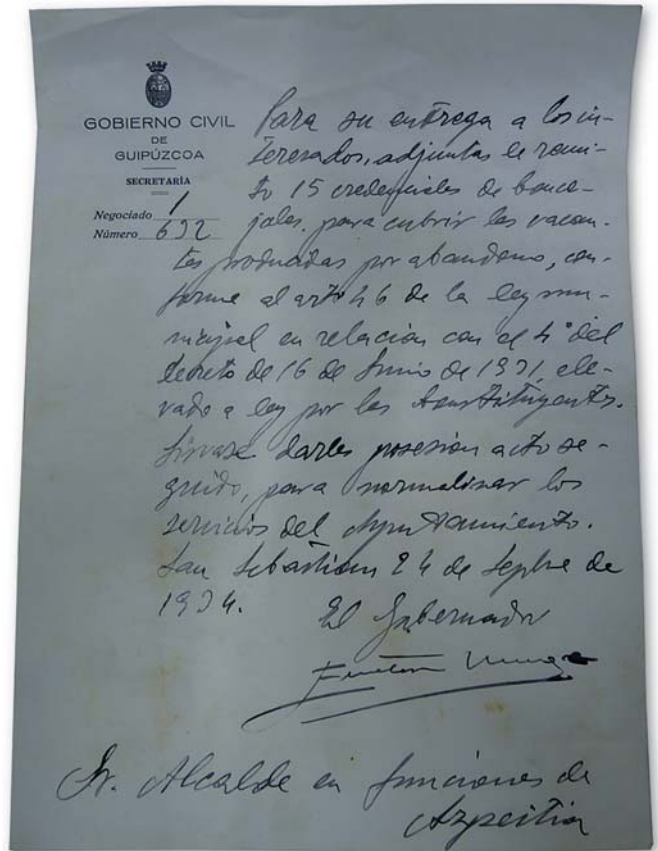 GOBIERNO CIVIL
DE
GUIPÚZCOA
SECRETARÍA
Negociado 1
Número 632
Para su entrega a los in-
teresados, adjuntas le remi-
to 15 credenciales de conce-
jales, para cubrir las vacan-
tes producidas por abandono, con-
forme al artº 46 de la ley mu-
nicipal en relación con el 4º del
decreto de 16 de Junio de 1931, ele-
vado a ley por las Constituyentes.
Sírvase darles posesión acto se-
guido, para normalizar los
servicios del Ayuntamiento.
San Sebastian 24 de Sepbre de
1934.
El Gobernador
Sr. Alcalde en funciones de
Azpeitia